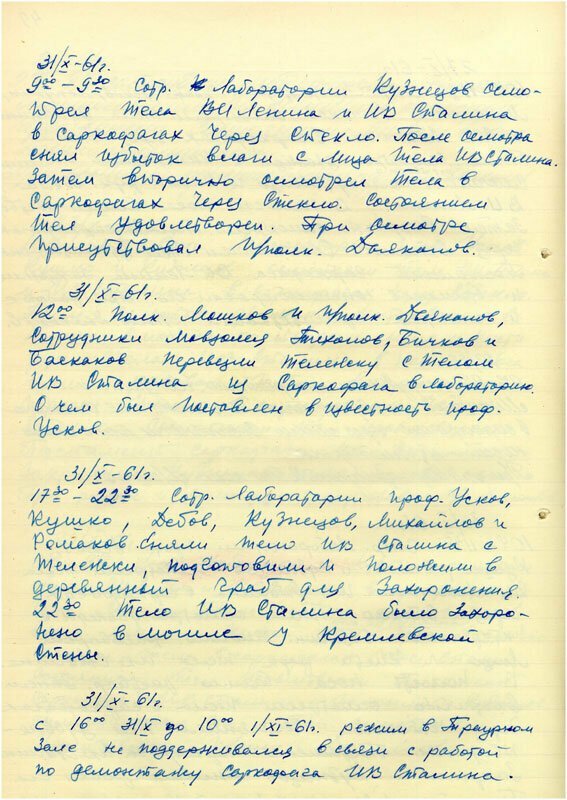 31/X-61г.
9⁰⁰ – 9³⁰ Сотр. Лаборатории Кузнецов осмо-
трел тела ВИ Ленина и ИВ Сталина
в саркофагах через стекло. После осмотра
снял избыток влаги с лица тела ИВ Сталина.
Затем вторично осмотрел тела в
саркофагах через стекло. Состоянием
тел удовлетворен. При осмотре
присутствовал п/полк.
31/X-61г.
12⁰⁰ Полк. Мошков и п/полк.
сотрудники мавзолея Тихонов, Бычков и
Баскаков перевезли тележку с телом
ИВ Сталина из Саркофага в лабораторию.
О чем был поставлен в известность проф.
Усков.
31/X-61г.
17³⁰ – 22³⁰ Сотр. Лаборатории проф. Усков,
Кушко, Дебов, Кузнецов, Михайлов и
Ромаков сняли тело ИВ Сталина с
тележки, подготовили и положили в
деревянный гроб для захоронения.
22³⁰ Тело ИВ Сталина было захоро-
нено в могиле у Кремлевской
стены.
31/X-61г.
с 16⁰⁰ 31/X до 10⁰⁰ 1/XI-61г. режим в Траурном
Зале не поддерживался в связи с работой
по демонтажу саркофага ИВ Сталина.